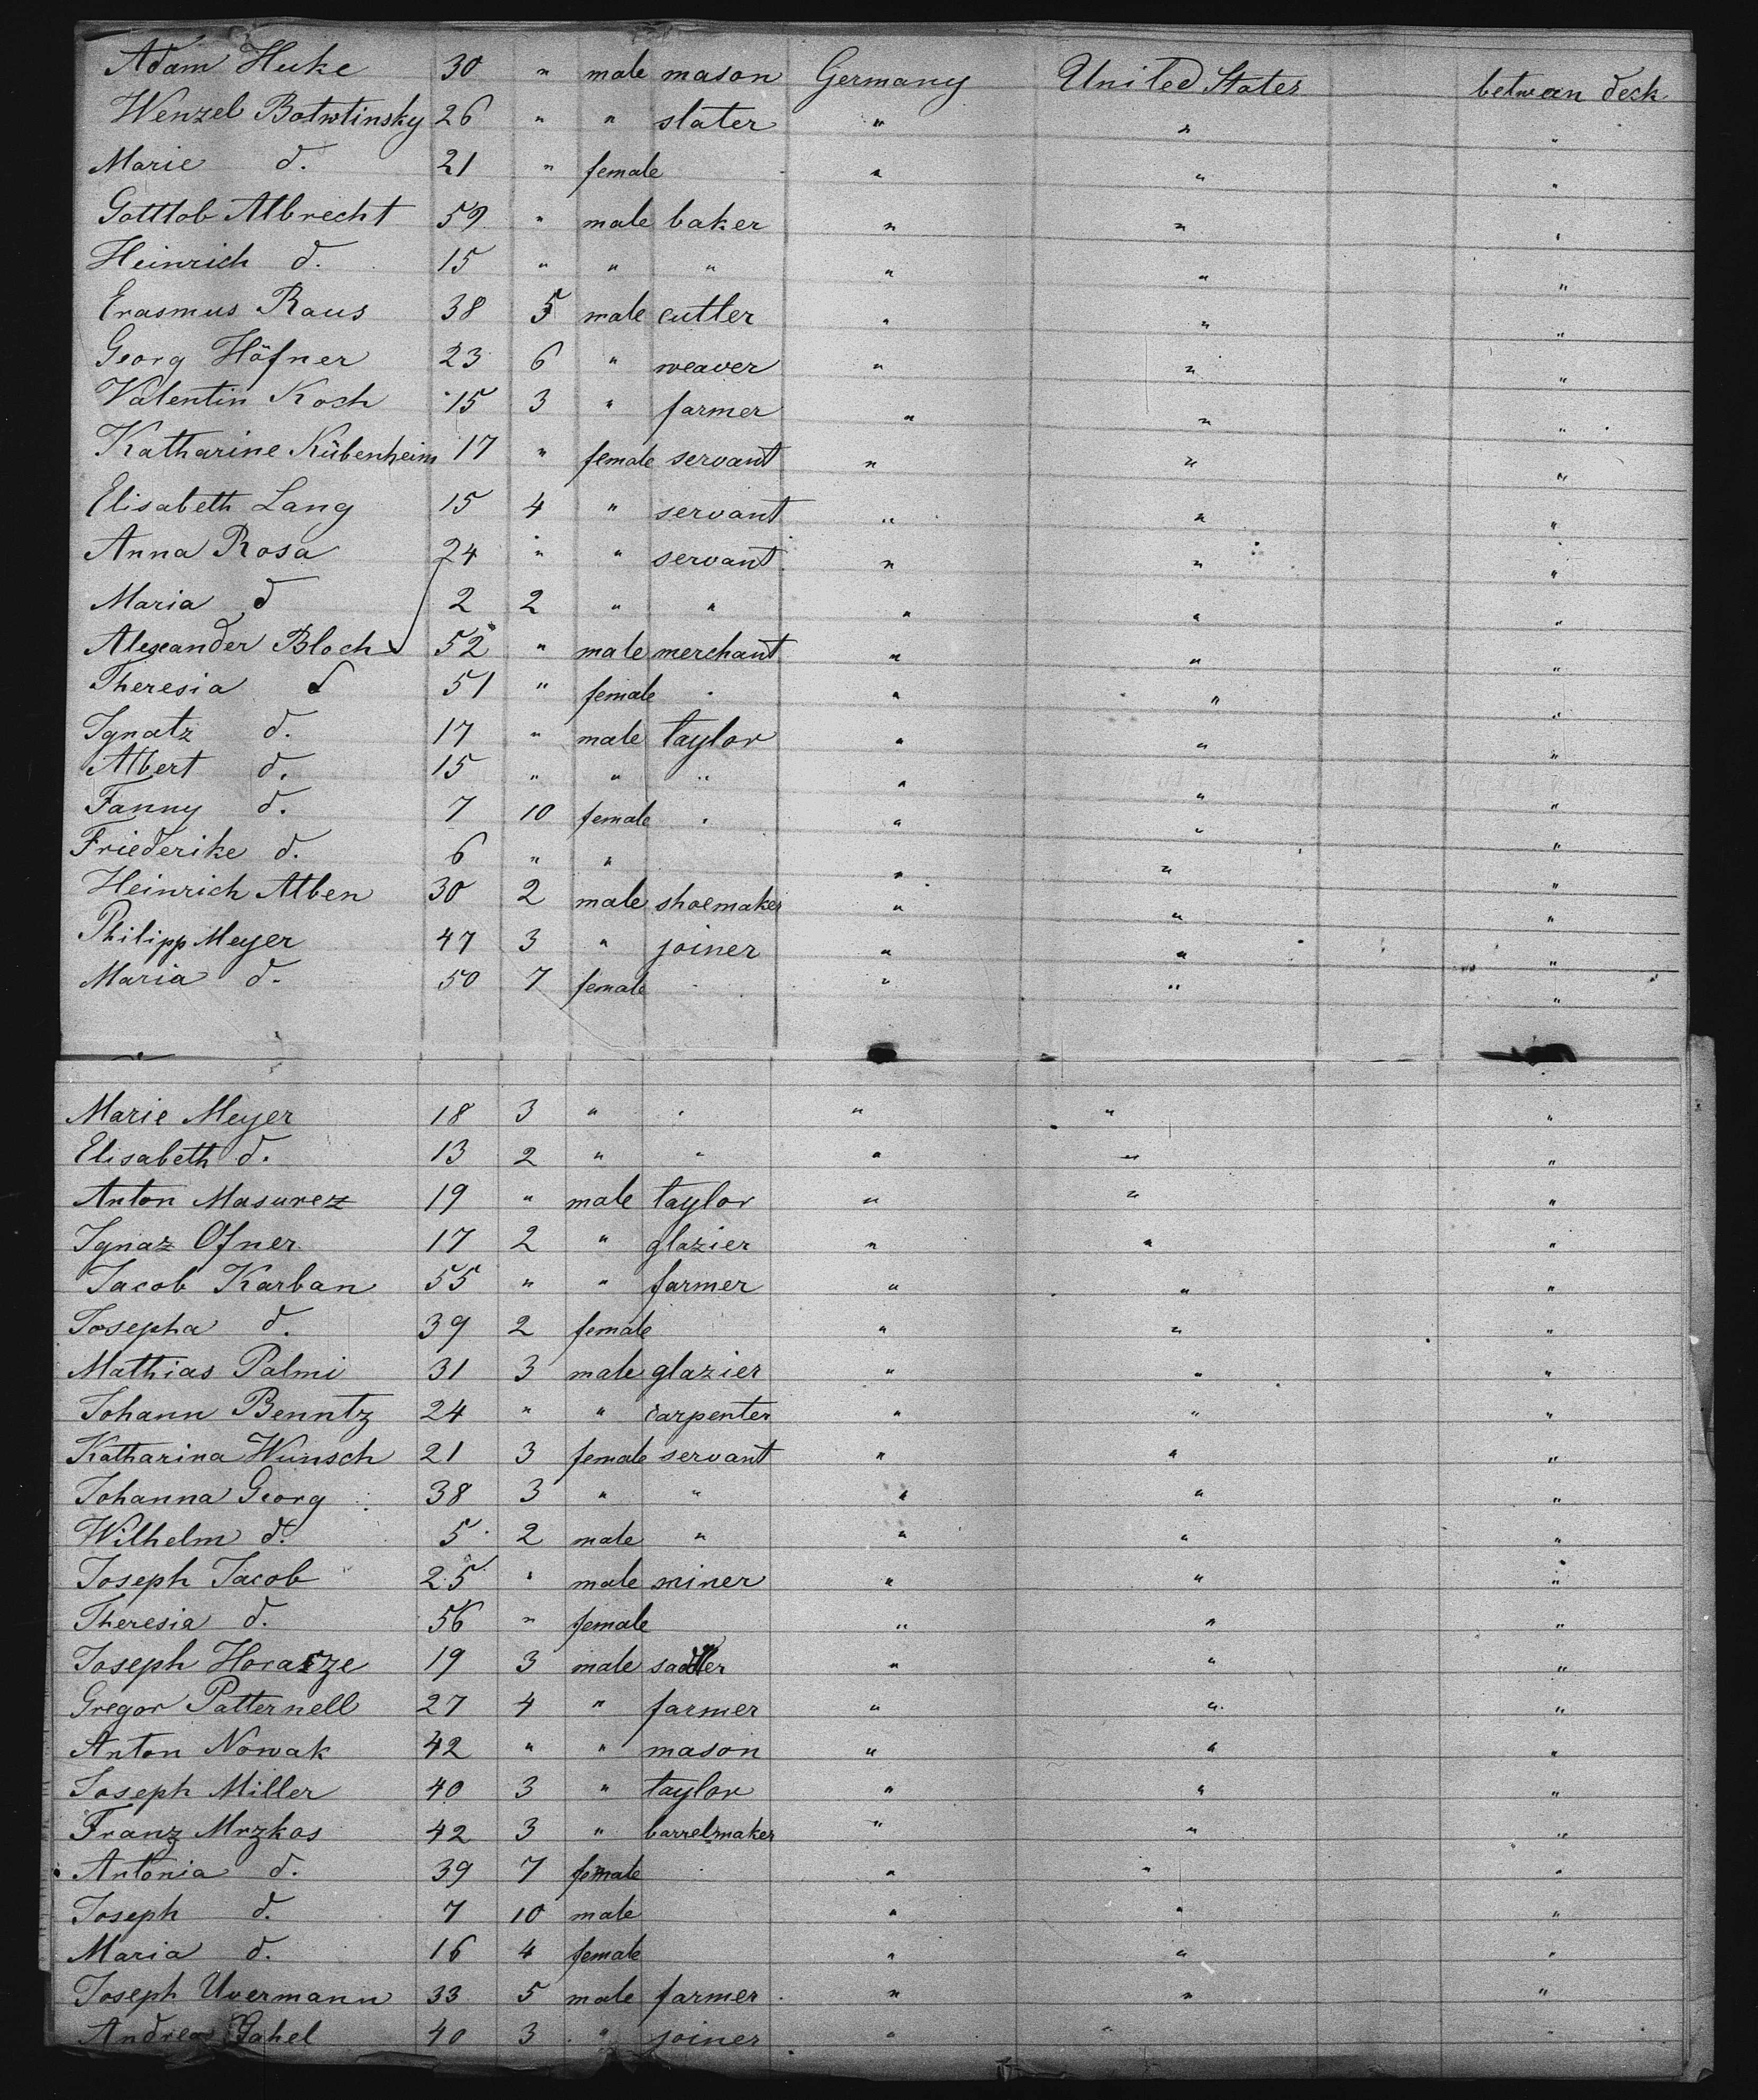 Adam Huke 30 " male mason Germany United States betwen deck
Wenzel Botwtinsky 26 " " slater " " "
Marie d. 21 " female " " "
Gottlob Albrecht 59 " male baker " " "
Heinrich d. 15 " " " " " "
Erasmus Raus 38 5 male cutler " " "
Georg Höfner 23 6 " weaver " " "
Valentin Koch 15 3 " farmer " " "
Katharine Kübenheim 17 " female servant " " "
Elisabeth Lang 15 4 " servant " " "
Anna Rosa 24 " " servant " " "
Maria d 2 2 " " " " "
Alexander Bloch 52 " male merchant " " "
Theresia d 51 " female " " "
Ignatz d. 17 " male taylor " " "
Albert d. 15 " " " " " "
Fanny d. 7 10 female " " "
Friederike d. 6 " " " " "
Heinrich Alben 30 2 male shoemaker " " "
Philipp Meyer 47 3 " joiner " " "
Maria d. 50 7 female " " "
Marie Meyer 18 3 " " " "
Elisabeth d. 13 2 " " " " "
Anton Masurez 19 " male taylor " " "
Ignaz Ofner 17 2 " glazier " " "
Jacob Karban 55 " " farmer " " "
Josepha d. 39 2 female " " "
Mathias Palmi 31 3 male glazier " " "
Johann Benntz 24 " " carpenter " " "
Katharina Wünsch 21 3 female servant " " "
Johanna Georg 38 3 " " " " "
Wilhelm d. 5 2 male " " " "
Joseph Jacob 25 " male miner " " "
Theresia d. 56 " female " " "
Joseph Horazze 19 3 male saddler " " "
Gregor Patternell 27 4 " farmer " " "
Anton Nowak 42 " " mason " " "
Joseph Miller 40 3 " taylor " " "
Franz Mrzkos 42 3 " barrelmaker " " "
Antonia d. 39 7 female " " "
Joseph d. 7 10 male " " "
Maria d. 16 4 female " " "
Joseph Uvermann 33 5 male farmer " " "
Andreas Gahel 40 3 " joiner " " "